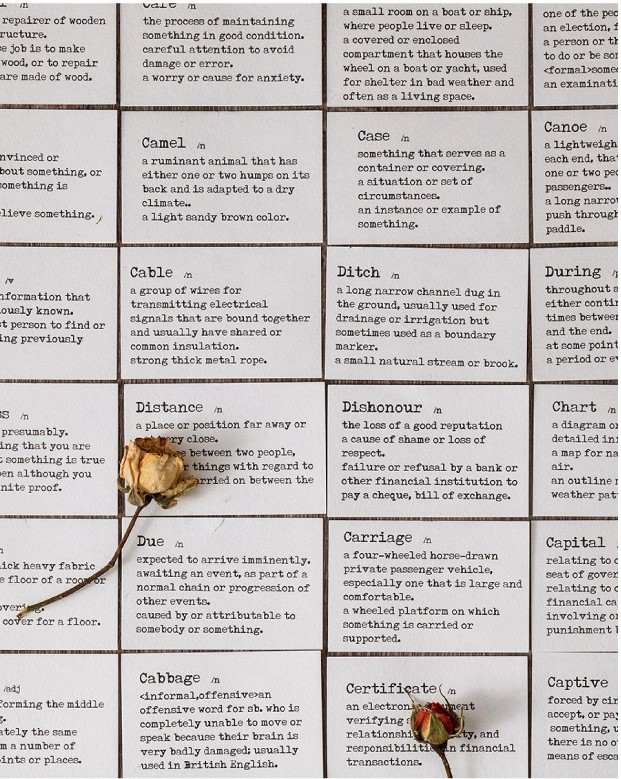 repairer of wooden
ructure.
e job is to make
wood, or to repair
are made of wood.
Care /n
the process of maintaining
something in good condition.
careful attention to avoid
damage or error.
a worry or cause for anxiety.
a small room on a boat or ship,
where people live or sleep.
a covered or enclosed
compartment that houses the
wheel on a boat or yacht, used
for shelter in bad weather and
often as a living space.
one of the peo
an election, f
a person or th
to do or be so
<formal>some
an examinati
nvinced or
bout something, or
something is
lieve something.
Camel /n
a ruminant animal that has
either one or two humps on its
back and is adapted to a dry
climate..
a light sandy brown color.
Case /n
something that serves as a
container or covering.
a situation or set of
circumstances.
an instance or example of
something.
Canoe /n
a lightweigh
each end, that
one or two peo
passengers..
a long narrow
push through
paddle.
/v
nformation that
ously known.
st person to find or
ing previously
Cable /n
a group of wires for
transmitting electrical
signals that are bound together
and usually have shared or
common insulation.
strong thick metal rope.
Ditch /n
a long narrow channel dug in
the ground, usually used for
drainage or irrigation but
sometimes used as a boundary
marker.
a small natural stream or brook.
During /p
throughout s
either contin
times between
and the end.
at some point
a period or ev
ss /n
presumably.
ing that you are
t something is true
en although you
nite proof.
Distance /n
a place or position far away or
very close.
between two people,
things with regard to
carried on between the
Dishonour /n
the loss of a good reputation
a cause of shame or loss of
respect.
failure or refusal by a bank or
other financial institution to
pay a cheque, bill of exchange.
Chart /n
a diagram or
detailed inf
a map for na
air.
an outline m
weather pat
/n
ick heavy fabric
e floor of a room or
overing.
cover for a floor.
Due /n
expected to arrive imminently.
awaiting an event, as part of a
normal chain or progression of
other events.
caused by or attributable to
somebody or something.
Carriage /n
a four-wheeled horse-drawn
private passenger vehicle,
especially one that is large and
comfortable.
a wheeled platform on which
something is carried or
supported.
Capital /
relating to c
seat of gover
relating to c
financial ca
involving or
punishment b
/adj
forming the middle
g.
ately the same
m a number of
oints or places.
Cabbage /n
<informal,offensive>an
offensive word for sb. who is
completely unable to move or
speak because their brain is
very badly damaged; usually
used in British English.
Certificate /n
an electronic document
verifying
relationship ty, and
responsibilities in financial
transactions.
Captive
forced by cir
accept, or pay
something, u
there is no o
means of esca